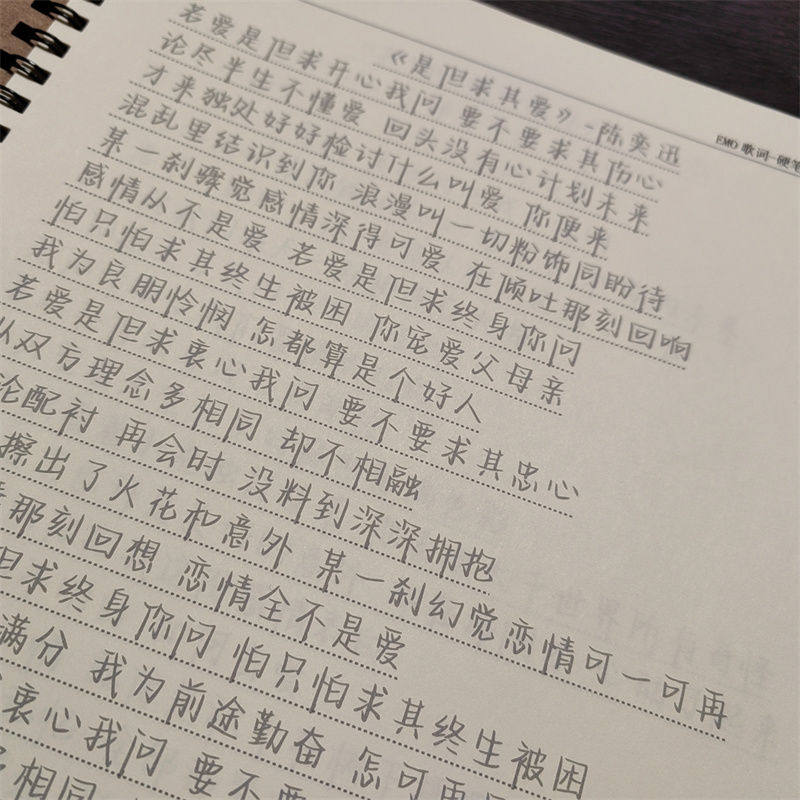 EMO 歌词-硬笔
《是但求其爱》-陈奕迅
若爱是但求开心我问 要不要求其伤心
论尽半生不懂爱 回头没有心计划未来
才来独处好好检讨什么叫爱 你便来
混乱里结识到你 浪漫叫一切粉饰同盼待
某一刹骤觉感情深得可爱 在倾吐那刻回响
感情从不是爱 若爱是但求终身你问
怕只怕求其终生被困 你宠爱父母亲
我为良朋怜悯 怎都算是个好人
若爱是但求衷心我问 要不要求其忠心
从双方理念多相同 却不相融
论配衬 再会时 没料到深深拥抱
擦出了火花和意外 某一刹幻觉恋情可一可再
那刻回想 恋情全不是爱
但求终身你问 怕只怕求其终生被困
满分 我为前途勤奋 怎可再
衷心我问 要不要
多相同